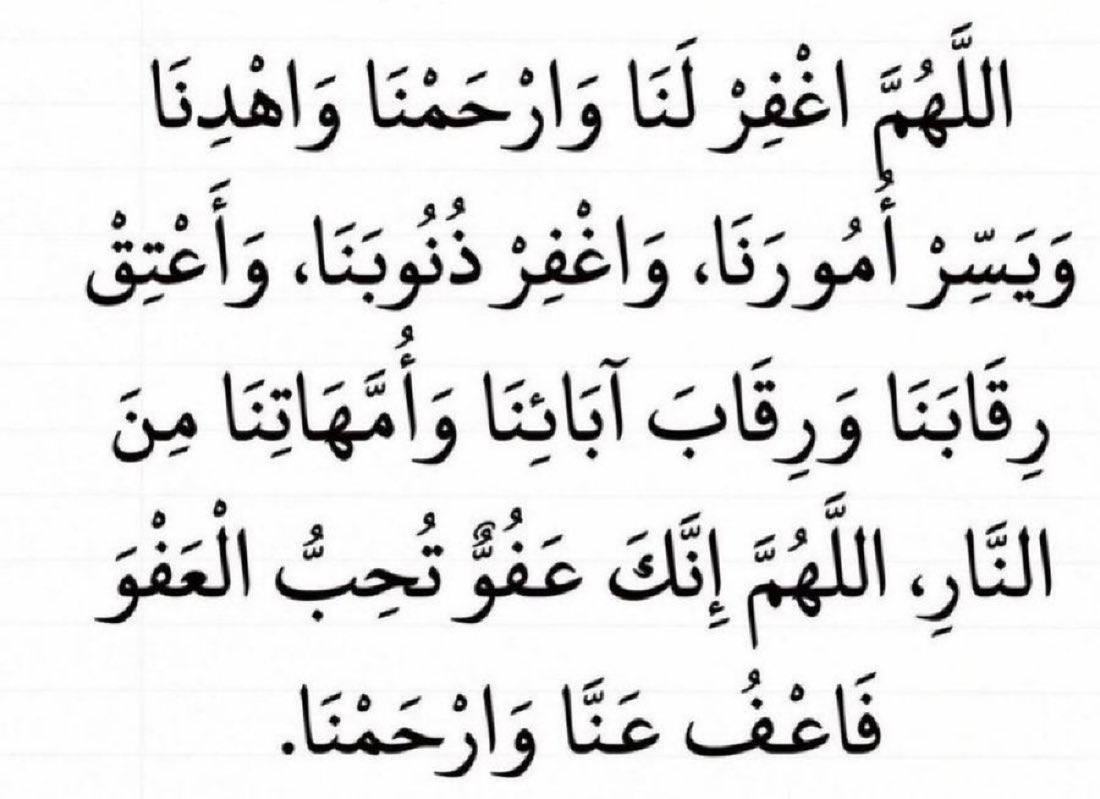 اللَّهُمَّ اغْفِرْ لَنَا وَارْحَمْنَا وَاهْدِنَا
وَيَسِّرْ أُمُورَنَا، وَاغْفِرْ ذُنُوبَنَا، وَأَعْتِقْ
رِقَابَنَا وَرِقَابَ آبَائِنَا وَأُمَّهَاتِنَا مِنَ
النَّارِ، اللَّهُمَّ إِنَّكَ عَفُوٌّ تُحِبُّ الْعَفْوَ
فَاعْفُ عَنَّا وَارْحَمْنَا.